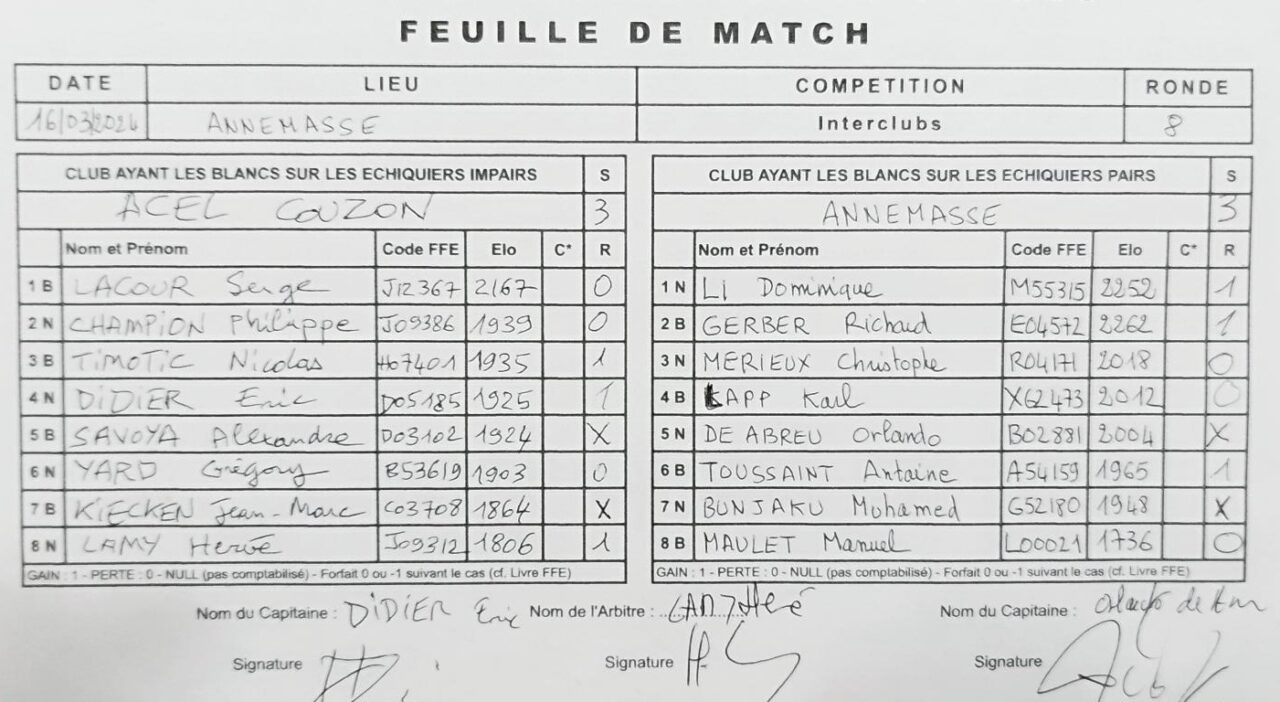 FEUILLE DE MATCH
DATE LIEU COMPETITION RONDE
16/03/2024 ANNEMASSE Interclubs 8
CLUB AYANT LES BLANCS SUR LES ECHIQUIERS IMPAIRS S CLUB AYANT LES BLANCS SUR LES ECHIQUIERS PAIRS S
ACEL COUZON 3 ANNEMASSE 3
Nom et Prénom Code FFE Elo C* R Nom et Prénom Code FFE Elo C* R
1 B LACOUR Serge J12367 2167 0 1 N LI Dominique M55315 2252 1
2 N CHAMPION Philippe J09386 1939 0 2 B GERBER Richard E04572 2262 1
3 B TIMOTIC Nicolas H07401 1935 1 3 N MERIEUX Christophe R04171 2018 0
4 N DIDIER Eric D05185 1925 1 4 B KAPP Karl X62473 2012 0
5 B SAVOYA Alexandre D03102 1924 X 5 N DE ABREU Orlando B02881 2004 X
6 N YARD Grégory B53619 1903 0 6 B TOUSSAINT Antaine A54159 1965 1
7 B KIECKEN Jean-Marc C03708 1864 X 7 N BUNJAKU Mohamed G52180 1948 X
8 N LAMY Hervé J09312 1806 1 8 B MAULET Manuel L00021 1736 0
GAIN : 1 - PERTE : 0 - NULL (pas comptabilisé) - Forfait 0 ou -1 suivant le cas (cf. Livre FFE) GAIN : 1 - PERTE : 0 - NULL (pas comptabilisé) - Forfait 0 ou -1 suivant le cas (cf. Livre FFE)
Nom du Capitaine : DIDIER Eric Nom de l'Arbitre : Nom du Capitaine : Orlando de
Signature Signature Signature